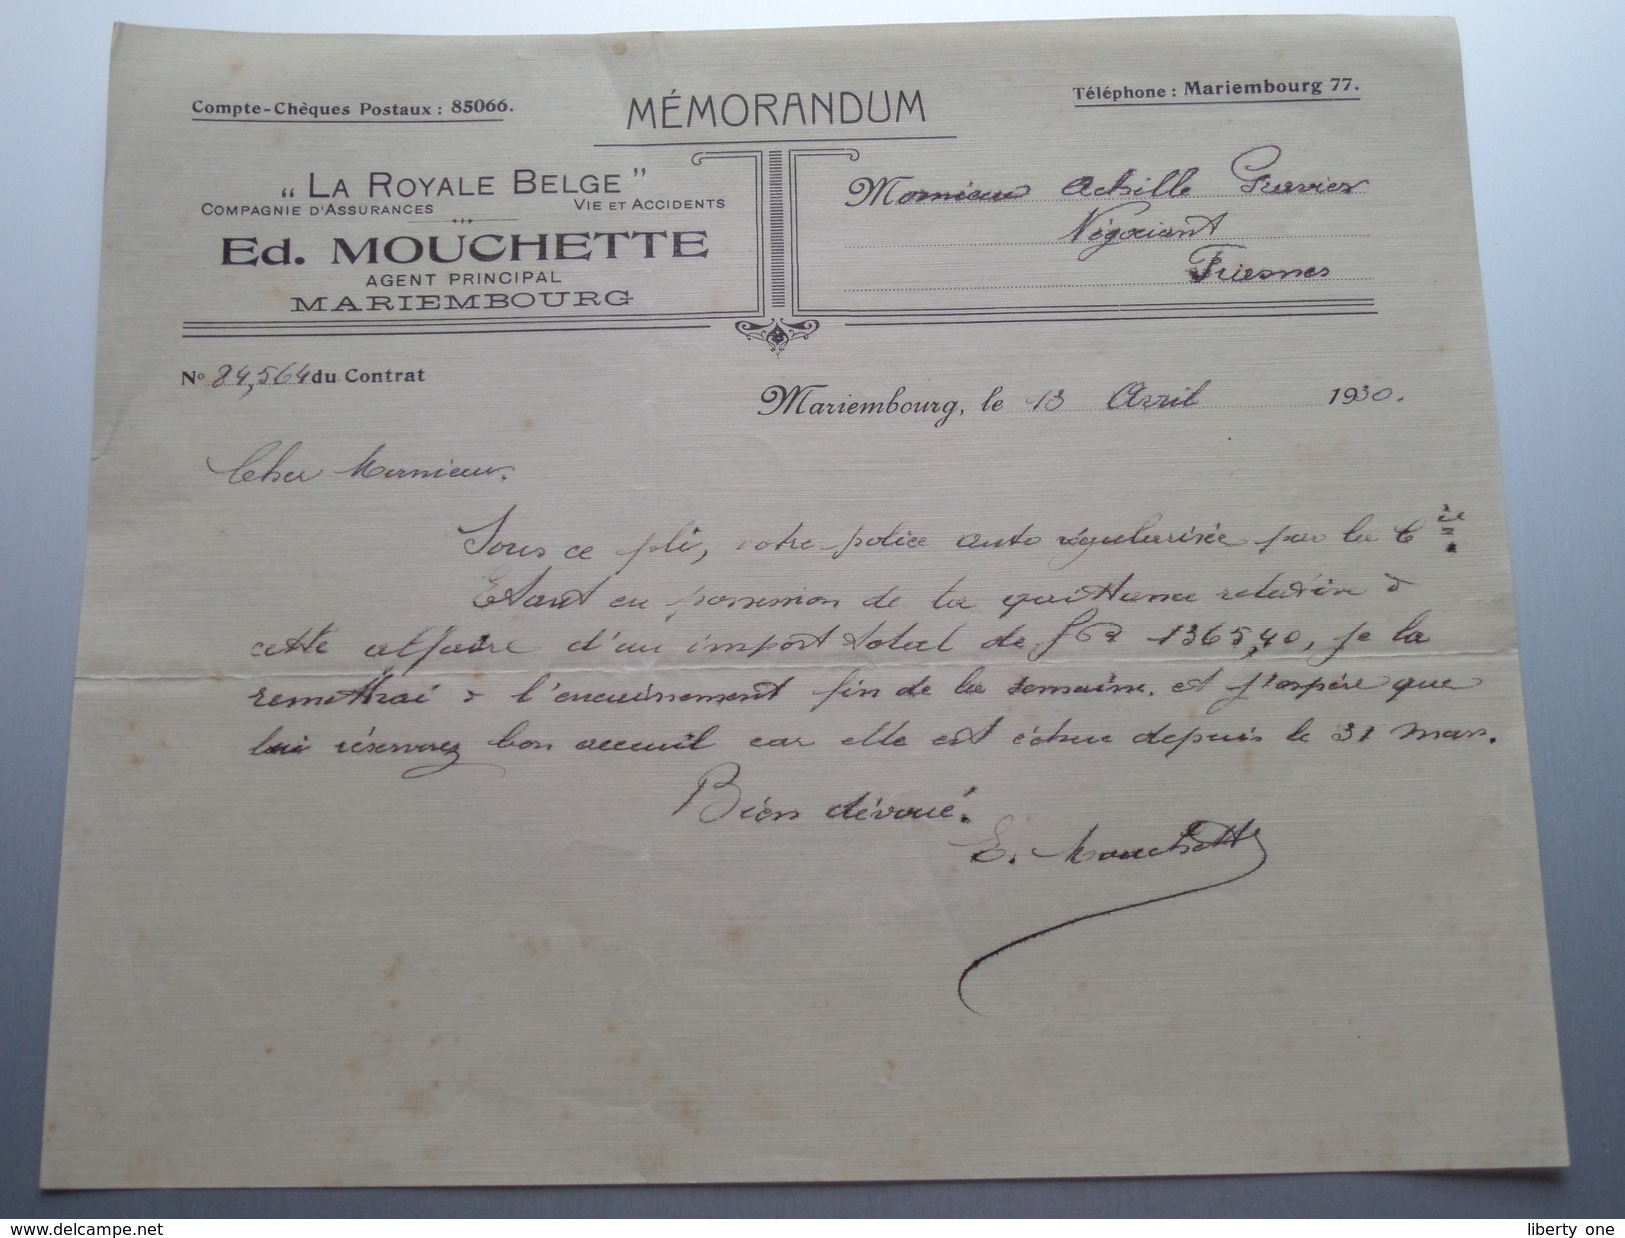 Compte-Chèques Postaux : 85066.
MÉMORANDUM
Téléphone : Mariembourg 77.
„ LA ROYALE BELGE "
COMPAGNIE D'ASSURANCES VIE ET ACCIDENTS
ED. MOUCHETTE
AGENT PRINCIPAL
MARIEMBOURG
Monsieur Achille
Négociant
No 84,564 du Contrat
Mariembourg, le 13 Avril 1930.
Cher Monsieur,
Sous ce pli, votre police auto régularisée par la Cie
Etant en possession de la quittance relative à
cette affaire d'un import total de 1365,40, je la
remettrai à l'encaissement fin de la semaine, et j'espère que
lui réserverez bon accueil car elle est échue depuis le 31 mars.
Bien dévoué.
E. Mouchette
delcampe.net
liberty one